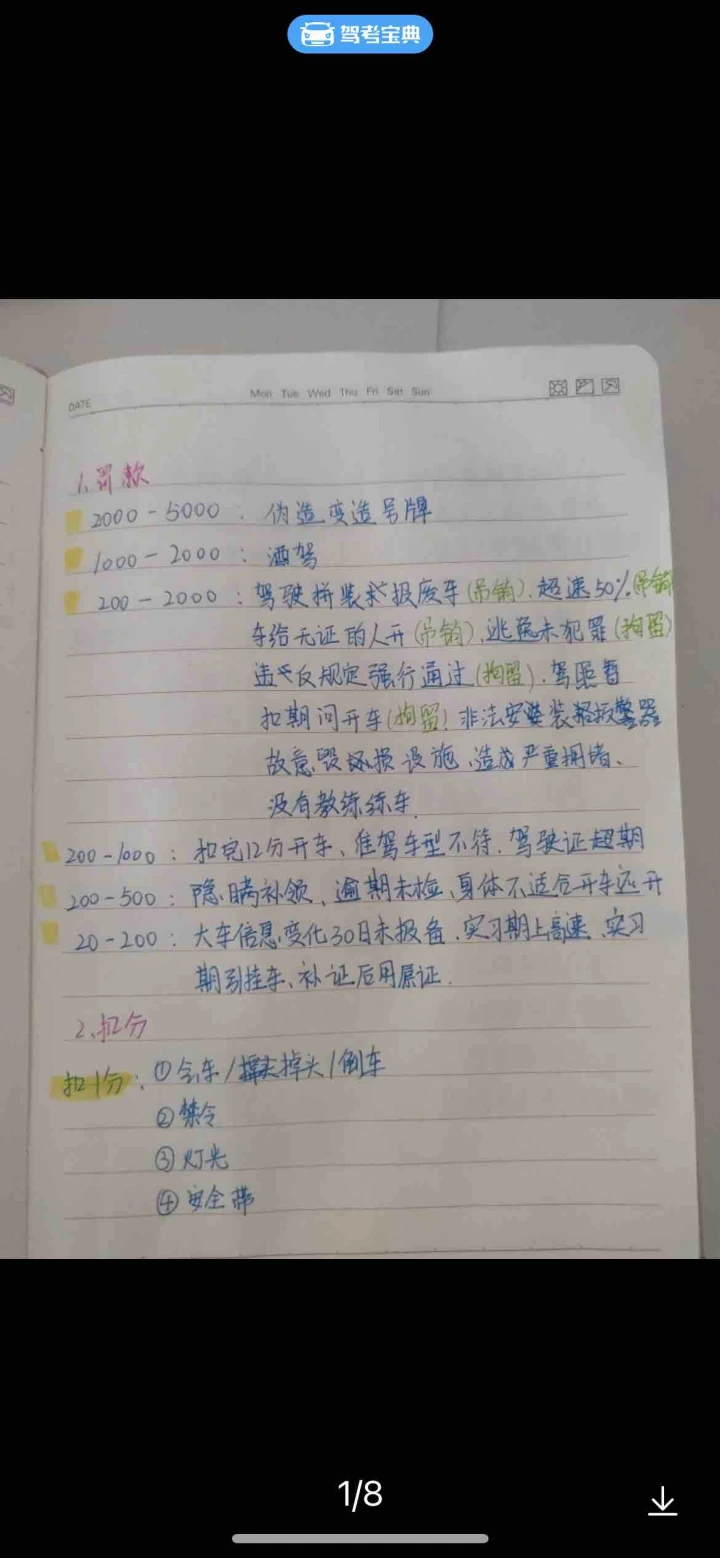 驾考宝典
DATE
Mon Tue Wed Thu Fri Sat Sun
1、罚款
2000-5000：伪造变造号牌
1000-2000：酒驾
200-2000：驾驶拼装or报废车(吊销)、超速50%(吊销
车给无证的人开(吊销)、逃逸未犯罪(拘留)
违反规定强行通过(拘留)、驾照暂
扣期间开车(拘留)非法安装警报器
故意毁坏损设施、造成严重拥堵、
没有教练练车.
200-1000：扣完12分开车、准驾车型不符、驾驶证超期
200-500：隐瞒补领、逾期未检、身体不适合开车还开
20-200：大车信息变化30日未报备、实习期上高速、实习
期引挂车、补证后用原证.
2、扣分
扣1分：①会车/掉头/倒车
②禁令
③灯光
④安全带
1/8